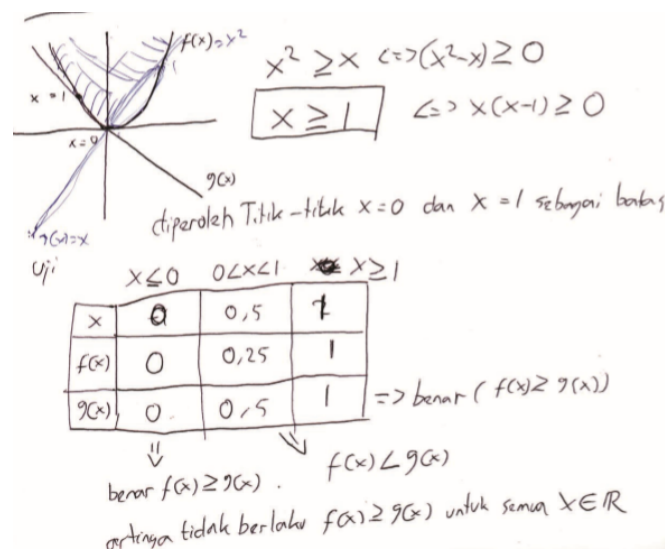 f(x)=x²
x = 1
x=0
g(x)
g(x)=x
x² ≥ x <=> (x²-x) ≥ 0
x ≥ 1 <=> x(x-1) ≥ 0
diperoleh Titik-titik x=0 dan x=1 sebagai batas
Uji
x≤0 0<x<1 x≥1
x 0 0,5 1
f(x) 0 0,25 1
g(x) 0 0,5 1 => benar (f(x) ≥ g(x))
⇓ ⇓
f(x) < g(x)
benar f(x) ≥ g(x).
artinya tidak berlaku f(x) ≥ g(x) untuk semua x ∈ ℝ